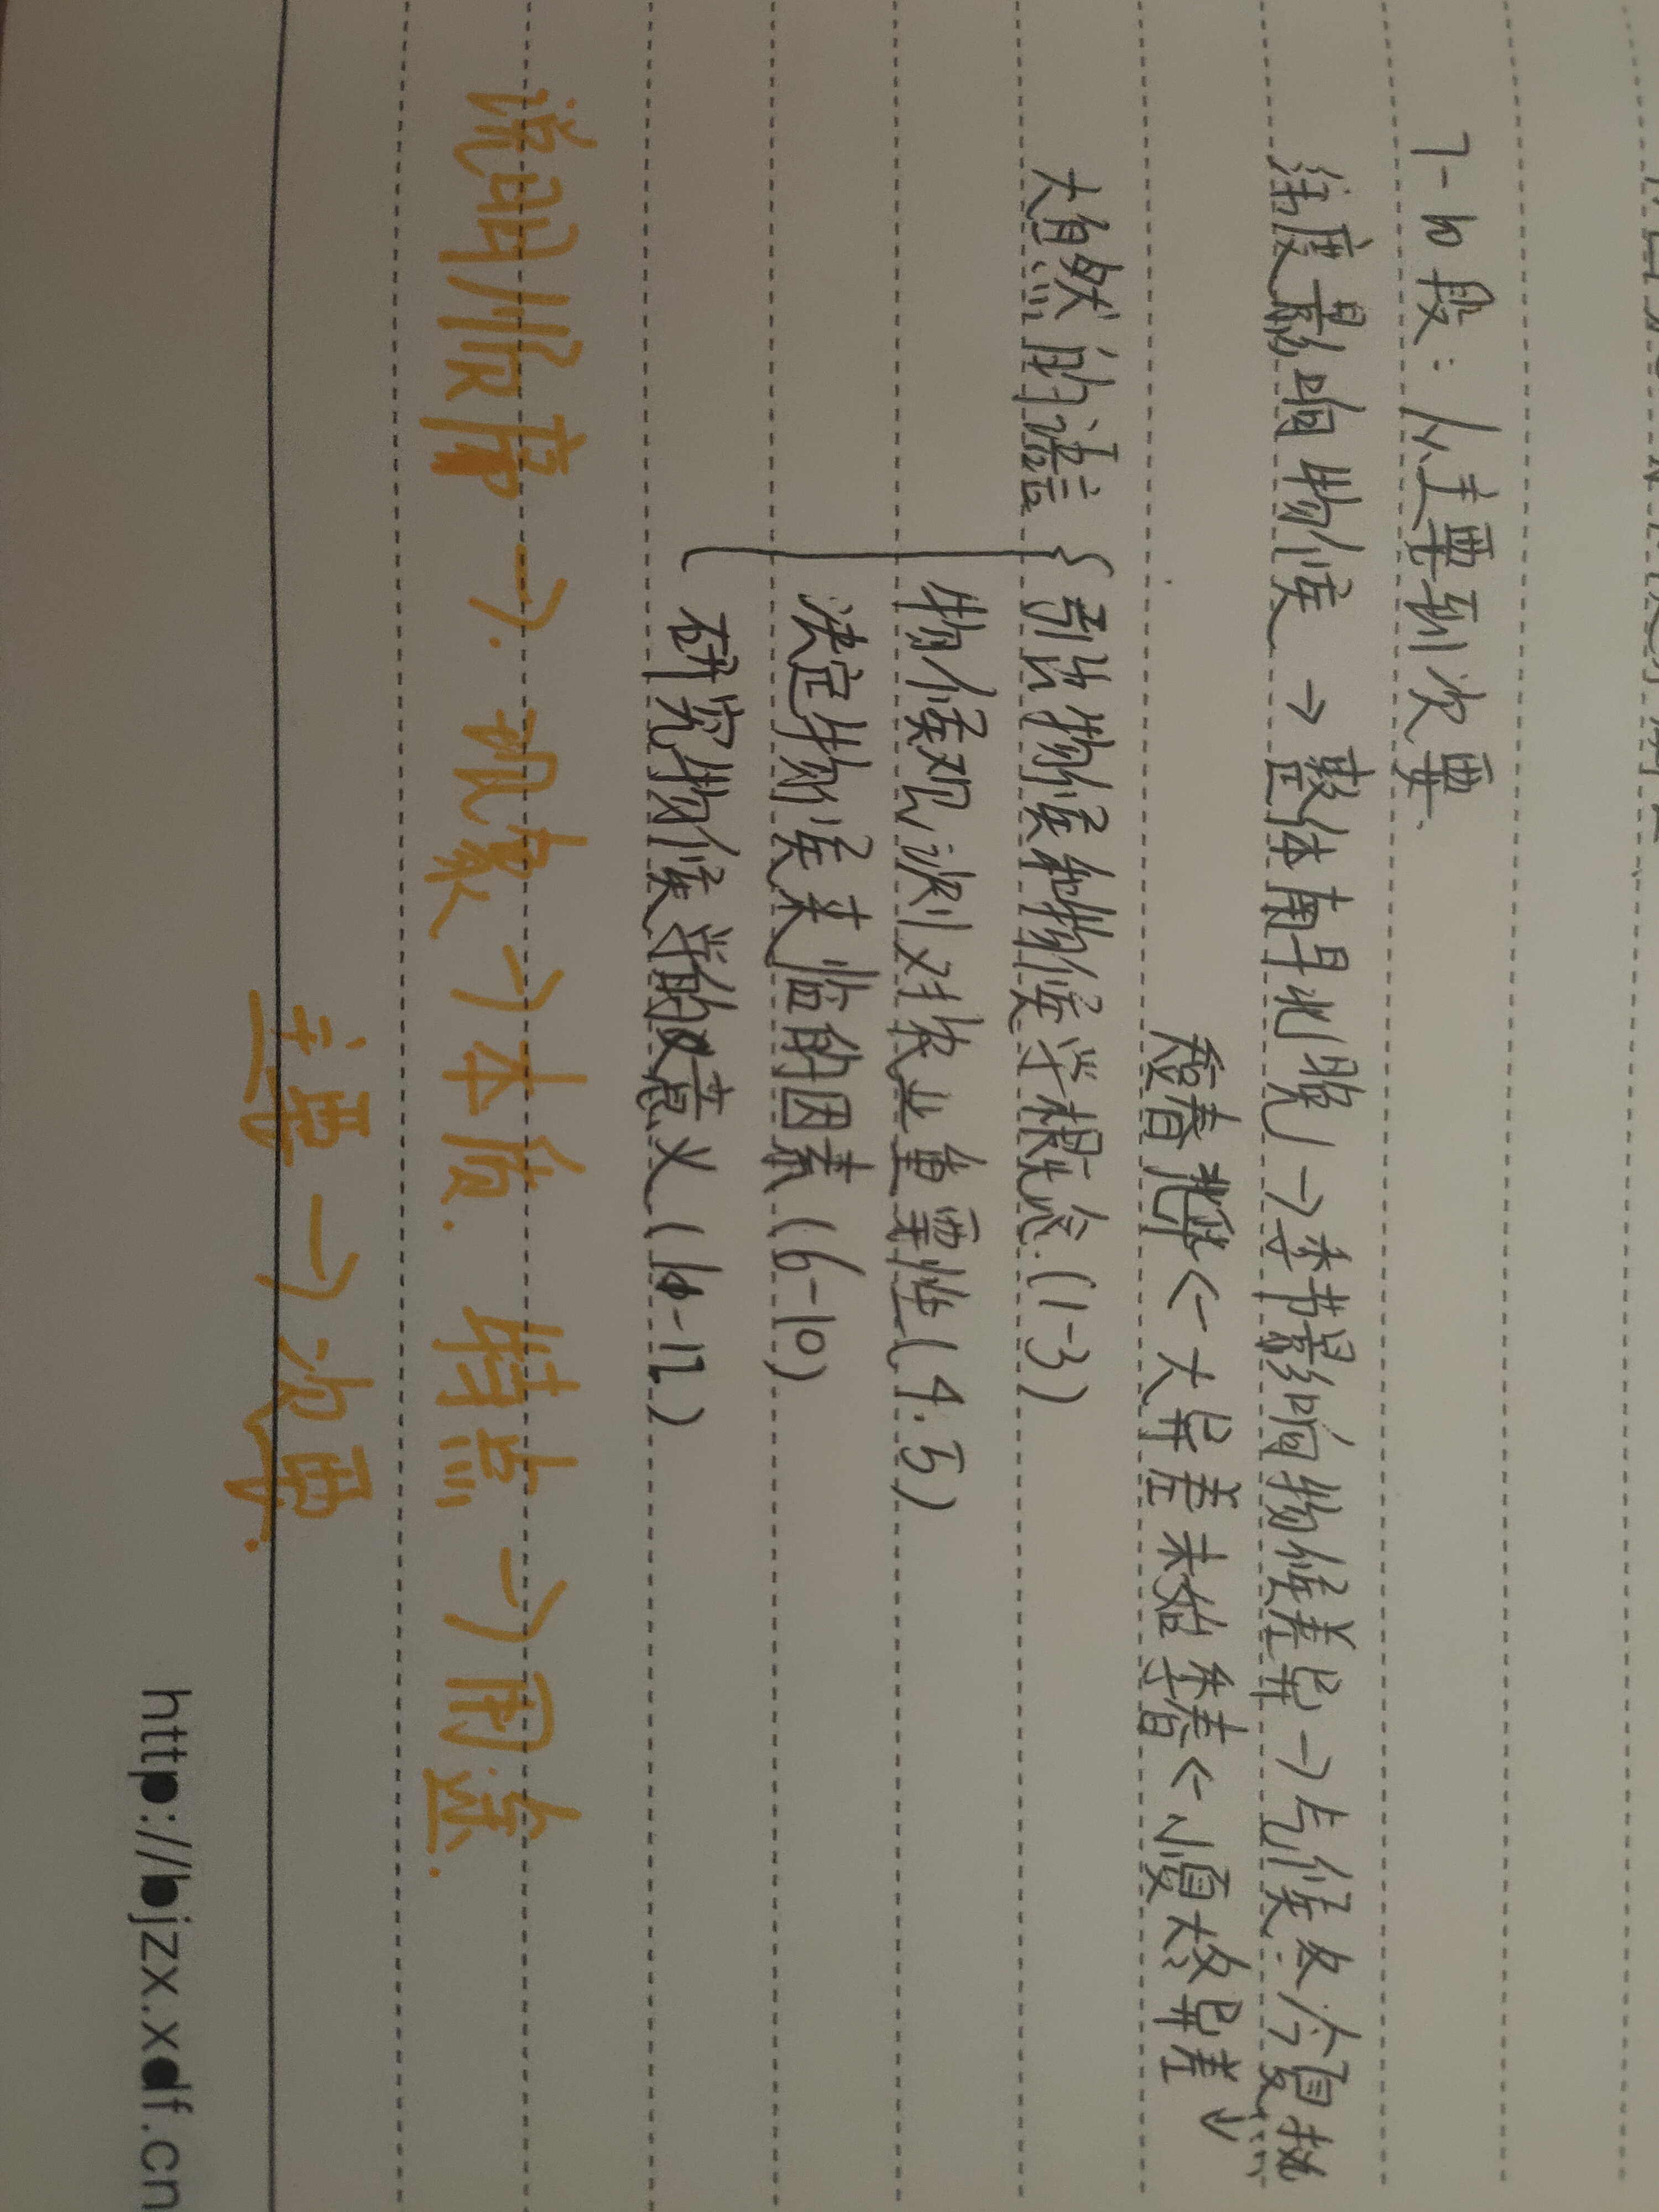 7-10段：从主要到次要.
纬度影响物候→整体南早北晚→季节影响物候差异→气候冬冷夏热
短春北华←大异差末始季春←小夏大冬异差↓
大自然的语言{引出物候和物候学概念.(1-3)
物候观测对农业重要性(4.5)
决定物候来临的因素(6-10)
研究物候学的意义(11-12)
说明顺序→. 现象→本质. 特点→用途.
主要→次要.
http://bjzx.xdf.cn